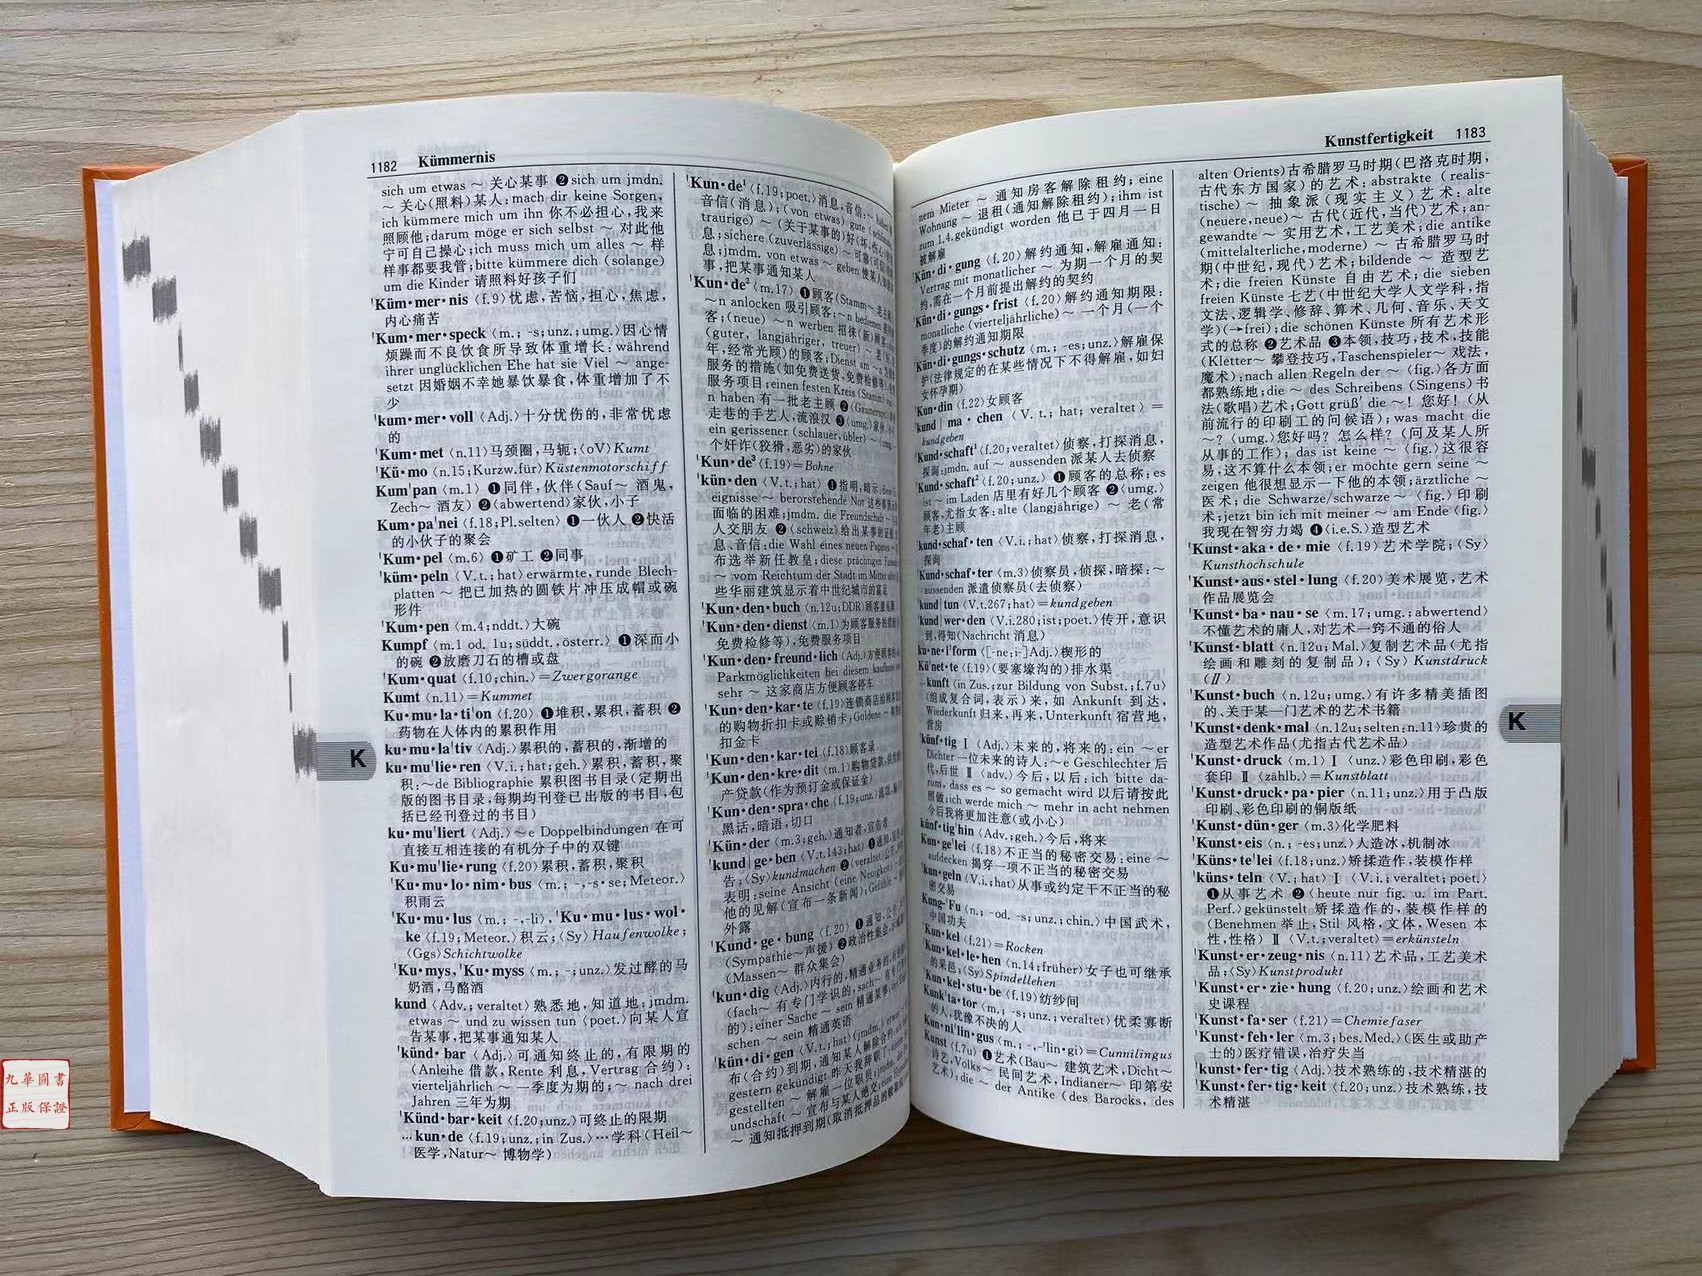 1182 Kümmernis
sich um etwas ～ 关心某事 ❷sich um jmdn.
～ 关心(照料)某人; mach dir keine Sorgen,
ich kümmere mich um ihn 你不必担心,我来
照顾他;darum möge er sich selbst ～ 对此他
宁可自己操心;ich muss mich um alles ～ 样
样事都要我管;bitte kümmere dich (solange)
um die Kinder 请照料好孩子们
'Küm·mer·nis ⟨f.9⟩忧虑,苦恼,担心,焦虑,
内心痛苦
'Kum·mer·speck ⟨m.; -s;unz.;umg.⟩因心情
烦躁而不良饮食所导致体重增长: während
ihrer unglücklichen Ehe hat sie Viel ～ ange-
setzt 因婚姻不幸她暴饮暴食,体重增加了不
少
'kum·mer·voll ⟨Adj.⟩十分忧伤的,非常忧虑
的
'Kum·met ⟨n.11⟩马颈圈,马轭;⟨oV⟩Kumt
'Kü·mo ⟨n.15;Kurzw.für⟩Küstenmotorschiff
Kum'pan ⟨m.1⟩ ❶同伴,伙伴(Sauf～ 酒鬼,
Zech～ 酒友) ❷⟨abwertend⟩家伙,小子
Kum·pa'nei ⟨f.18;Pl.selten⟩ ❶一伙人 ❷快活
的小伙子的聚会
'Kum·pel ⟨m.6⟩ ❶矿工 ❷同事
'küm·peln ⟨V.t.;hat⟩ erwärmte, runde Blech-
platten ～ 把已加热的圆铁片冲压成帽或碗
形件
'Kum·pen ⟨m.4;nddt.⟩大碗
Kumpf ⟨m.1 od. 1u;süddt.,österr.⟩ ❶深而小
的碗 ❷放磨刀石的槽或盘
'Kum·quat ⟨f.10;chin.⟩=Zwergorange
Kumt ⟨n.11⟩=Kummet
Ku·mu·la·ti'on ⟨f.20⟩ ❶堆积,累积,蓄积 ❷
药物在人体内的累积作用
ku·mu·la'tiv ⟨Adj.⟩累积的,蓄积的,渐增的
ku·mu'lie·ren ⟨V.i.;hat;geh.⟩累积,蓄积,聚
积:～de Bibliographie 累积图书目录(定期出
版的图书目录,每期均刊登已出版的书目,包
括已经刊登过的书目)
ku·mu'liert ⟨Adj.⟩ ～e Doppelbindungen 在可
直接互相连接的有机分子中的双键
Ku·mu'lie·rung ⟨f.20⟩累积,蓄积,聚积
'Ku·mu·lo·nim·bus ⟨m.; -,-s·se;Meteor.⟩
积雨云
'Ku·mu·lus ⟨m.; -,-li⟩, 'Ku·mu·lus·wol·
ke ⟨f.19;Meteor.⟩积云;⟨Sy⟩Haufenwolke;
⟨Ggs⟩Schichtwolke
'Ku·mys, 'Ku·myss ⟨m.; -;unz.⟩发过酵的马
奶酒,马酪酒
kund ⟨Adv.;veraltet⟩熟悉地,知道地:jmdm.
etwas ～ und zu wissen tun ⟨poet.⟩向某人宣
告某事,把某事通知某人
'künd·bar ⟨Adj.⟩可通知终止的,有限期的
(Anleihe 借款,Rente 利息,Vertrag 合约):
vierteljährlich ～一季度为期的;～ nach drei
Jahren 三年为期
'Künd·bar·keit ⟨f.20;unz.⟩可终止的限期
…kun·de ⟨f.19;unz.;in Zus.⟩…学科(Heil～
医学,Natur～ 博物学)
'Kun·de¹ ⟨f.19;poet.⟩消息,音信:
音信(消息);(von etwas) gute
traurige) ～(关于某事的)好
息;sichere (zuverlässige) ～可靠
息;jmdm. von etwas ～ geben 使某人
事,把某事通知某人
'Kun·de² ⟨m.17⟩ ❶顾客(Stamm～
～n anlocken 吸引顾客;～n bedienen
客;(neue) ～n werben 招徕(新)顾客
(guter, langjähriger, treuer) ～
年,经常光顾)的顾客;Dienst am ～n
服务的措施(如免费送货,免费检修等)
服务项目;einen festen Kreis (Stamm)
n haben 有一批老主顾 ❷
走巷的手艺人,流浪汉 ❸⟨umg.⟩家伙
ein gerissener (schlauer,übler) ～
个奸诈(狡猾,恶劣)的家伙
'Kun·de³ ⟨f.19⟩=Bohne
'kün·den ⟨V.t.;hat⟩ ❶指明,暗示
eignisse ～ berorstehende Not 这些事
面临的困难;jmdm. die Freundschaft
人交朋友 ❷⟨schweiz⟩给出某事的
息、音信:die Wahl eines neuen Papstes
布选举新任教皇;diese prächtigen
～ vom Reichtum der Stadt im Mittel
些华丽建筑显示着中世纪城市的富足
'Kun·den·buch ⟨n.12u;DDR⟩顾客意见簿
'Kun·den·dienst ⟨m.1⟩为顾客服务的措施
免费检修等),免费服务项目
'Kun·den·freund·lich ⟨Adj.⟩方便顾客
Parkmöglichkeiten bei diesem kaufhaus
sehr ～ 这家商店方便顾客停车
'Kun·den·kar·te ⟨f.19⟩连锁商店给顾客
的购物折扣卡或赊销卡: Goldene
扣金卡
'Kun·den·kar·tei ⟨f.18⟩顾客录
'Kun·den·kre·dit ⟨m.1⟩购物贷款
产贷款(作为预订金或保证金)
'Kun·den·spra·che ⟨f.19;unz.⟩
黑话,暗语,切口
'Kün·der ⟨m.3;geh.⟩通知者,宣告者
'kund|ge·ben ⟨V.t.143;hat⟩ ❶通知
告;⟨Sy⟩kundmachen ❷⟨veraltet⟩
表明:seine Ansicht (eine Neuigkeit)
他的见解(宣布一条新闻);Gefühle
外露
'Kund·ge·bung ⟨f.20⟩ ❶通知
(Sympathie～声援) ❷政治性集会
(Massen～ 群众集会)
'kun·dig ⟨Adj.⟩内行的,精通业务的
(fach～ 有专门学识的,sach～
的):einer Sache ～ sein 精通某事
schen ～ sein 精通英语
'kün·di·gen ⟨V.t.;hat⟩(jmdm.) etwas
布(合约)到期,通知某人解除合约
gestern gekündigt 昨天我辞职了
gestellten ～ 解雇一位职员
undschaft ～ 宣布与某人绝交
～ 通知抵押到期(取消抵押品的
Kunstfertigkeit 1183
nem Mieter ～ 通知房客解除租约; eine
Wohnung ～ 退租(通知解除租约);ihm ist
zum 1.4.gekündigt worden 他已于四月一日
被解雇
'Kün·di·gung ⟨f.20⟩解约通知,解雇通知:
Vertrag mit monatlicher ～ 为期一个月的契
约,需在一个月前提出解约的契约
'Kün·di·gungs·frist ⟨f.20⟩解约通知期限:
monatliche (vierteljährliche)～ 一个月(一个
季度)的解约通知期限
'Kün·di·gungs·schutz ⟨m.; -es;unz.⟩解雇保
护(法律规定的在某些情况下不得解雇,如妇
女怀孕期)
'Kun·din ⟨f.22⟩女顾客
'kund|ma·chen ⟨V.t.; hat; veraltet⟩ =
kundgeben
'Kund·schaft¹ ⟨f.20;veraltet⟩侦察,打探消息,
探询:jmdn. auf ～ aussenden 派某人去侦察
'Kund·schaft² ⟨f.20;unz.⟩ ❶顾客的总称:es
ist ～ im Laden 店里有好几个顾客 ❷⟨umg.⟩
顾客,尤指女客:alte (langjährige) ～ 老(常
年老)主顾
'kund·schaf·ten ⟨V.i.;hat⟩侦察,打探消息,
探询
'Kund·schaf·ter ⟨m.3⟩侦察员,侦探,暗探:～
aussenden 派遣侦察员(去侦察)
'kund|tun ⟨V.t.267;hat⟩=kundgeben
'kund|wer·den ⟨V.i.280;ist;poet.⟩传开,意识
到,得知(Nachricht 消息)
ku·ne·i'form ⟨[-ne:i-]Adj.⟩楔形的
Kü'net·te ⟨f.19⟩(要塞壕沟的)排水渠
…kunft ⟨in Zus.;zur Bildung von Subst.;f.7u⟩
(组成复合词,表示)来,如 Ankunft 到达,
Wiederkunft 归来,再来,Unterkunft 宿营地,
营房
'künf·tig Ⅰ ⟨Adj.⟩未来的,将来的:ein ～er
Dichter 一位未来的诗人;～e Geschlechter 后
代,后世 Ⅱ ⟨adv.⟩今后,以后:ich bitte da-
rum, dass es ～ so gemacht wird 以后请按此
照做;ich werde mich ～ mehr in acht nehmen
今后我将更加注意(或小心)
'künf·tig'hin ⟨Adv.;geh.⟩今后,将来
Kun·ge'lei ⟨f.18⟩不正当的秘密交易:eine ～
aufdecken 揭穿一项不正当的秘密交易
'kun·geln ⟨V.i.;hat⟩从事或约定干不正当的秘
密交易
Kung-'Fu ⟨n.; -od. -s;unz.;chin.⟩中国武术,
中国功夫
'Kun·kel ⟨f.21⟩=Rocken
'Kun·kel·le·hen ⟨n.14;früher⟩女子也可继承
的采邑;⟨Sy⟩Spindellehen
'Kun·kel·stu·be ⟨f.19⟩纺纱间
Kunk'ta·tor ⟨m.; -s;unz.;veraltet⟩优柔寡断
的人,犹豫不决的人
Kun·ni'lin·gus ⟨m.; -,-'lin·gi⟩=Cunnilingus
Kunst ⟨f.7u⟩ ❶艺术(Bau～ 建筑艺术,Dicht～
诗艺,Volks～ 民间艺术,Indianer～ 印第安
艺术):die ～ der Antike (des Barocks, des
alten Orients)古希腊罗马时期(巴洛克时期,
古代东方国家)的艺术; abstrakte (realis-
tische) ～ 抽象派(现实主义)艺术; alte
(neuere,neue) ～ 古代(近代,当代)艺术;an-
gewandte ～ 实用艺术,工艺美术;die antike
(mittelalterliche,moderne) ～ 古希腊罗马时
期(中世纪,现代)艺术;bildende ～ 造型艺
术;die freien Künste 自由艺术;die sieben
freien Künste 七艺(中世纪大学人文学科,指
文法、逻辑学、修辞、算术、几何、音乐、天文
学)(→frei);die schönen Künste 所有艺术形
式的总称 ❷艺术品 ❸本领,技巧,技术,技能
(Kletter～ 攀登技巧,Taschenspieler～ 戏法,
魔术):nach allen Regeln der ～ ⟨fig.⟩各方面
都熟练地;die ～ des Schreibens (Singens)书
法(歌唱)艺术;Gott grüß' die ～! 您好! (从
前流行的印刷工的问候语); was macht die
～? ⟨umg.⟩您好吗? 怎么样? (问及某人所
从事的工作); das ist keine ～ ⟨fig.⟩这很容
易,这不算什么本领;er möchte gern seine ～
zeigen 他很想显示一下他的本领;ärztliche ～
医术; die Schwarze/schwarze ～ ⟨fig.⟩印刷
术;jetzt bin ich mit meiner ～ am Ende ⟨fig.⟩
我现在智穷力竭 ❹⟨i.e.S.⟩造型艺术
'Kunst·aka·de·mie ⟨f.19⟩艺术学院;⟨Sy⟩
Kunsthochschule
'Kunst·aus·stel·lung ⟨f.20⟩美术展览,艺术
作品展览会
'Kunst·ba·nau·se ⟨m.17;umg.;abwertend⟩
不懂艺术的庸人,对艺术一窍不通的俗人
'Kunst·blatt ⟨n.12u;Mal.⟩复制艺术品(尤指
绘画和雕刻的复制品);⟨Sy⟩Kunstdruck
(Ⅱ)
'Kunst·buch ⟨n.12u;umg.⟩有许多精美插图
的、关于某一门艺术的艺术书籍
'Kunst·denk·mal ⟨n.12u;selten:n.11⟩珍贵的
造型艺术作品(尤指古代艺术品)
'Kunst·druck ⟨m.1⟩ Ⅰ ⟨unz.⟩彩色印刷,彩色
套印 Ⅱ ⟨zählb.⟩=Kunstblatt
'Kunst·druck·pa·pier ⟨n.11;unz.⟩用于凸版
印刷、彩色印刷的铜版纸
'Kunst·dün·ger ⟨m.3⟩化学肥料
'Kunst·eis ⟨n.; -es;unz.⟩人造冰,机制冰
Küns·te'lei ⟨f.18;unz.⟩矫揉造作,装模作样
'küns·teln ⟨V.;hat⟩ Ⅰ ⟨V.i.;veraltet;poet.⟩
❶从事艺术 ❷⟨heute nur fig. u. im Part.
Perf.⟩gekünstelt 矫揉造作的,装模作样的
(Benehmen 举止,Stil 风格,文体,Wesen 本
性,性格) Ⅱ ⟨V.t.;veraltet⟩=erkünsteln
'Kunst·er·zeug·nis ⟨n.11⟩艺术品,工艺美术
品;⟨Sy⟩Kunstprodukt
'Kunst·er·zie·hung ⟨f.20;unz.⟩绘画和艺术
史课程
'Kunst·fa·ser ⟨f.21⟩=Chemiefaser
'Kunst·feh·ler ⟨m.3;bes.Med.⟩(医生或助产
士的)医疗错误,治疗失当
'kunst·fer·tig ⟨Adj.⟩技术熟练的,技术精湛的
'Kunst·fer·tig·keit ⟨f.20;unz.⟩技术熟练,技
术精湛
K
K
九華圖書
正版保證